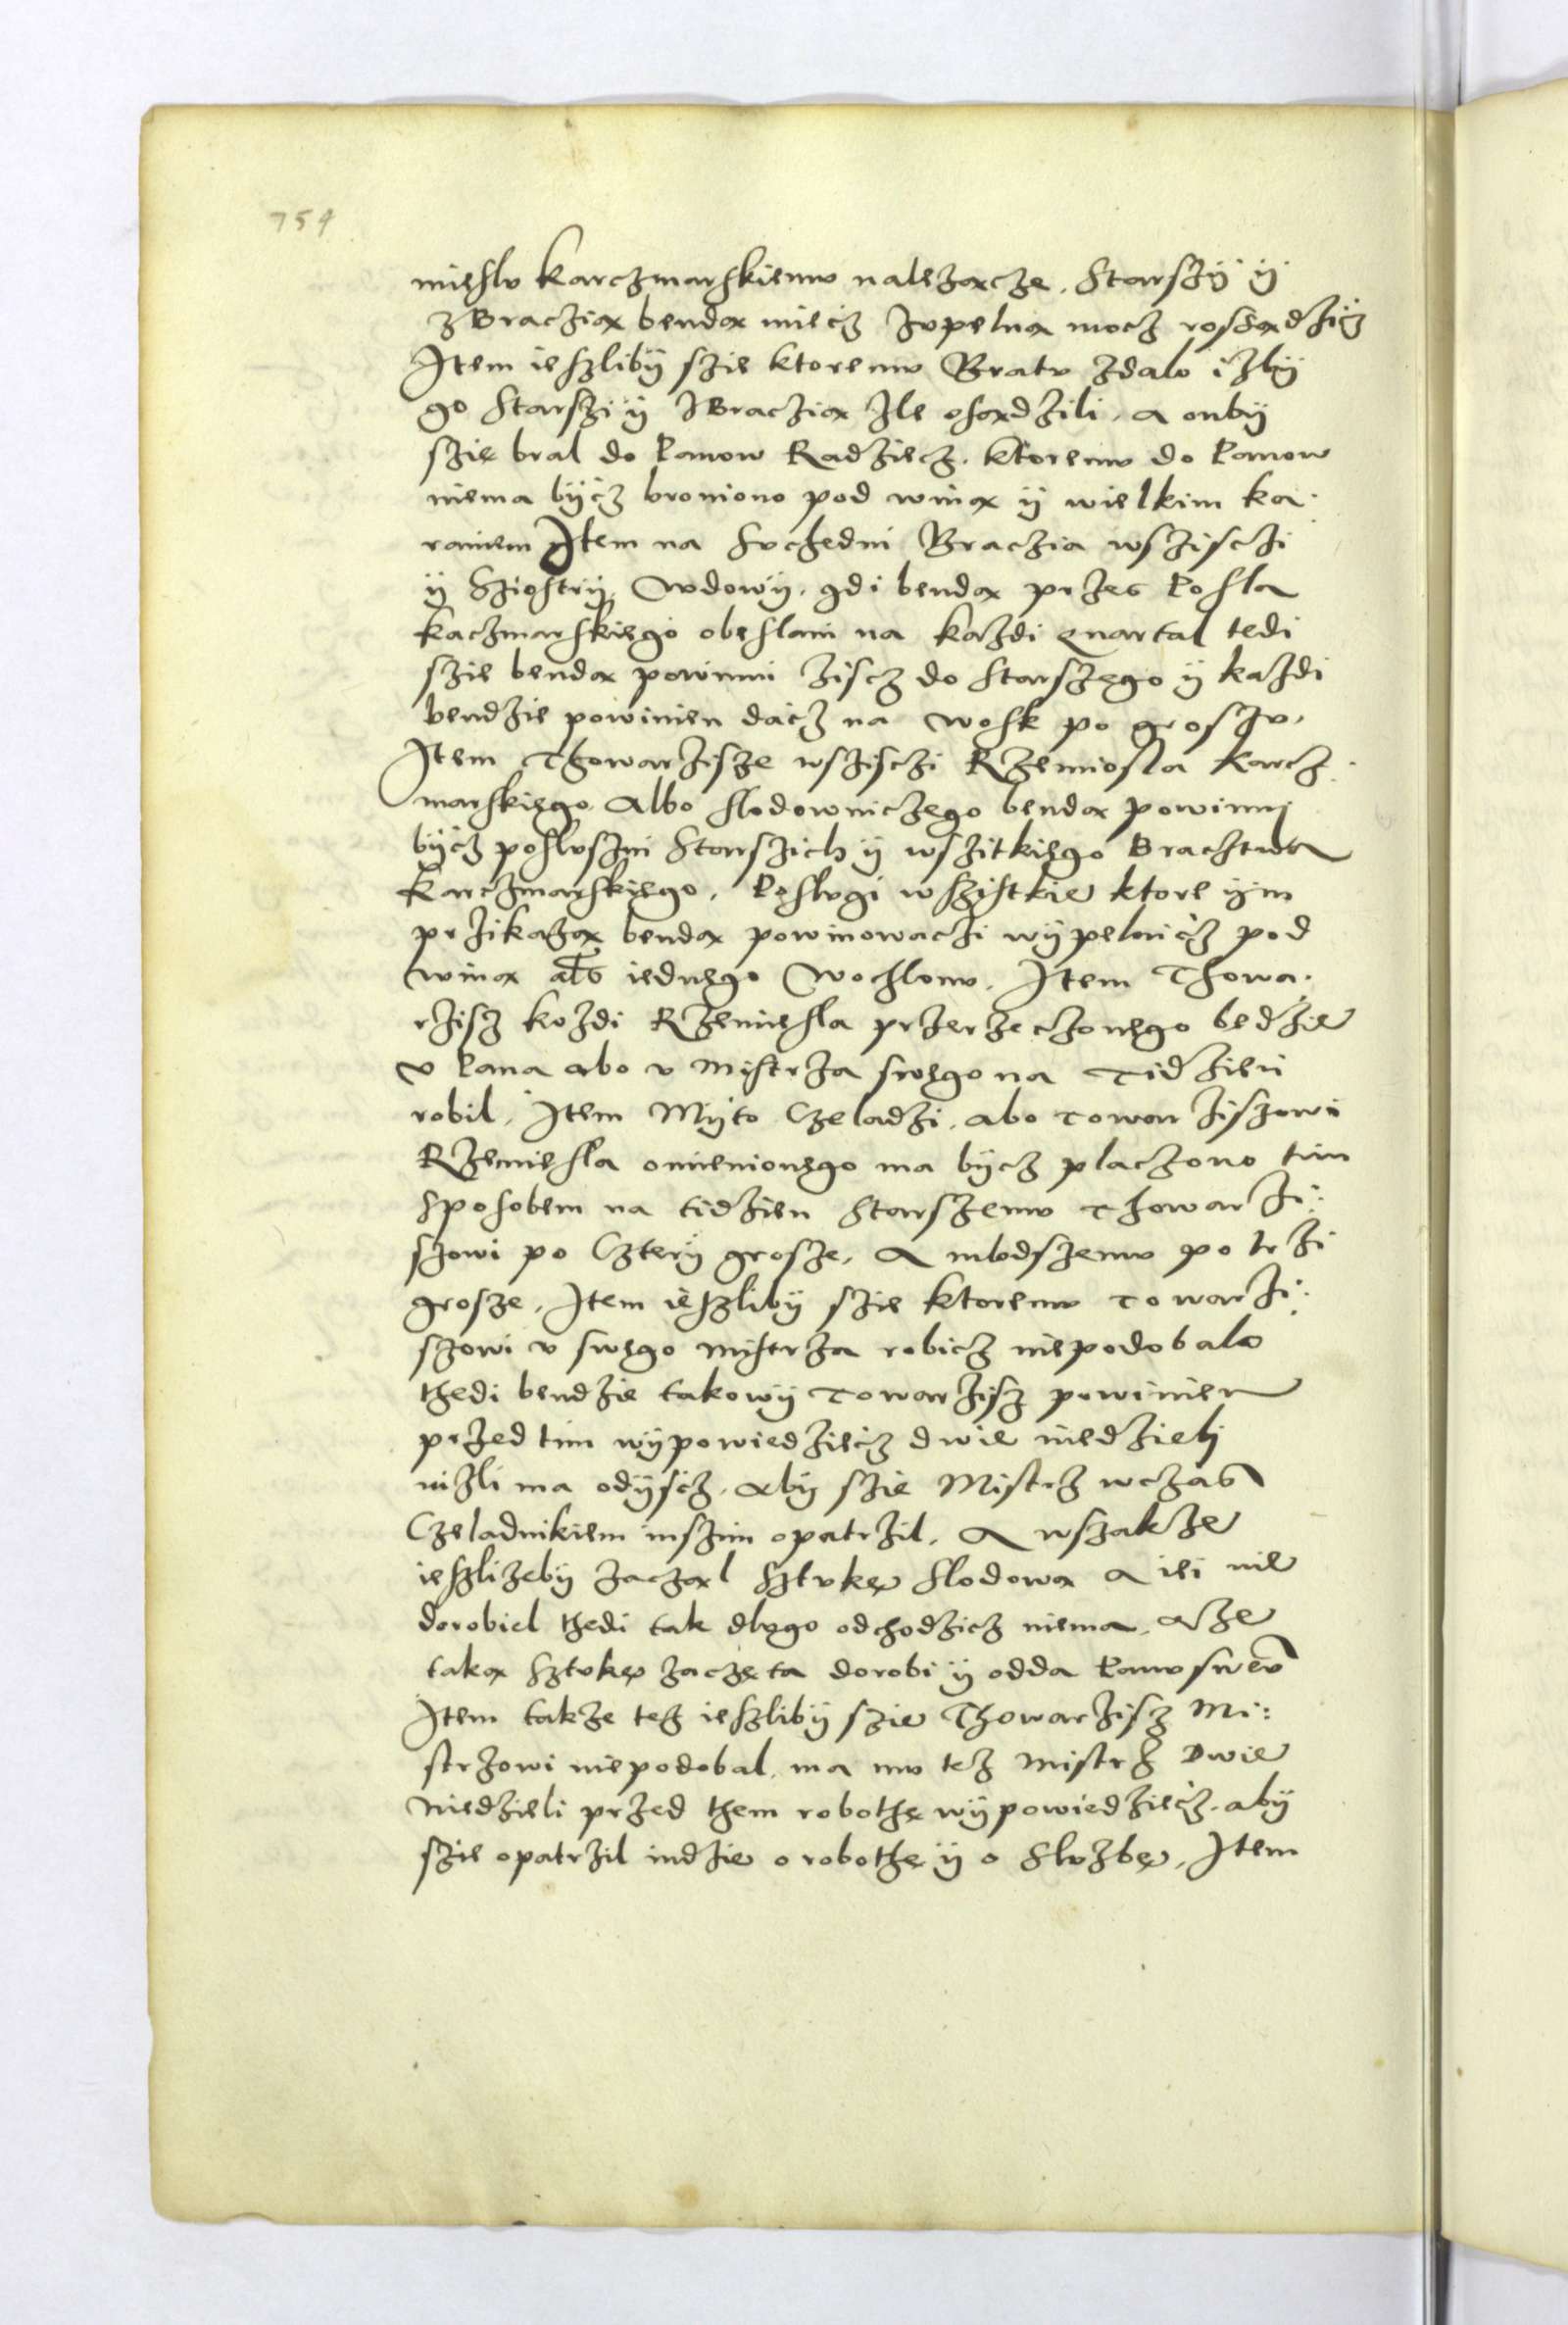 754
miesłu karczmarskiemu należącze. Starszÿ ÿ
z Braczią bendą miecz zupelną mocz rosządzicz
Item ieszlibÿ szie ktoremu Bratu zdało izbÿ
go Starszi ÿ zBraczią zle osądzili. a onbÿ
szię brał do Panow Radziecz. ktoremu do Panow
niema bÿcz broniono pod winą ÿ wielkim ka-
raniem Item na Suchedni Braczia wszisczi
ÿ Sziostrÿ Wdowÿ. gdi bendą przes Posla
kaczmarskiego obeslani na kazdi quartal tedi
szie bendą powinni ziscz do starszego ÿ kazdi
bendzie powinien dacz na wosk po groszu.
Item Thowarzisze wszisczi Rzemiosla karcz-
marskiego Albo slodowniczego bendą powinni
bÿcz posluszni Starszich ÿ wszitkiego Brachtwa
karczmarskiego. Poslugi wszistkie ktore ÿm
przikazą bendą powinowaczi wÿpelnicz pod
winą albo iednego Wochlonu. Item Thowa-
rzisz kozdi Rzemiesla przerzeczonego bedzie
v Pana abo v mistrza swego na Tidzien
robil. Item Mÿto Czeladzi. abo Towarziszowi
Rzemiesla omienionego ma bÿcz placzono tim
sposobem na tidzien Starszemu Thowarzi:
szowi po Cztery grosze. A mlodszemu po trzi
grosze. Item ieszlibÿ szie ktoremu Towarzi:
szowi v swego mistrza robicz niepodobalo
thedi bendzie takowÿ Towarzisz powinien
przed tim wÿpowiedziecz dwie niedzieli
nizli ma odÿscz. abÿ szie Mistrz wczas
Czeladnikiem inszim opatrzil. A wszakze
ieszlizebÿ zaczął sztukę slodową a iei nie
dorobiel thedi tak dlugo odchodzicz niema. Aze
taką sztukę zaczęta dorobi ÿ odda Panu sweu
Item takze tesz ieszlibÿ szie Thowarzisz Mi:
strzowi niepodobal. ma mu tez mistrz Dwie
niedzieli przed them robothę wÿpowiedziecz. abÿ
szie opatrzil indzie o robothę ÿ o sluzbę. Item